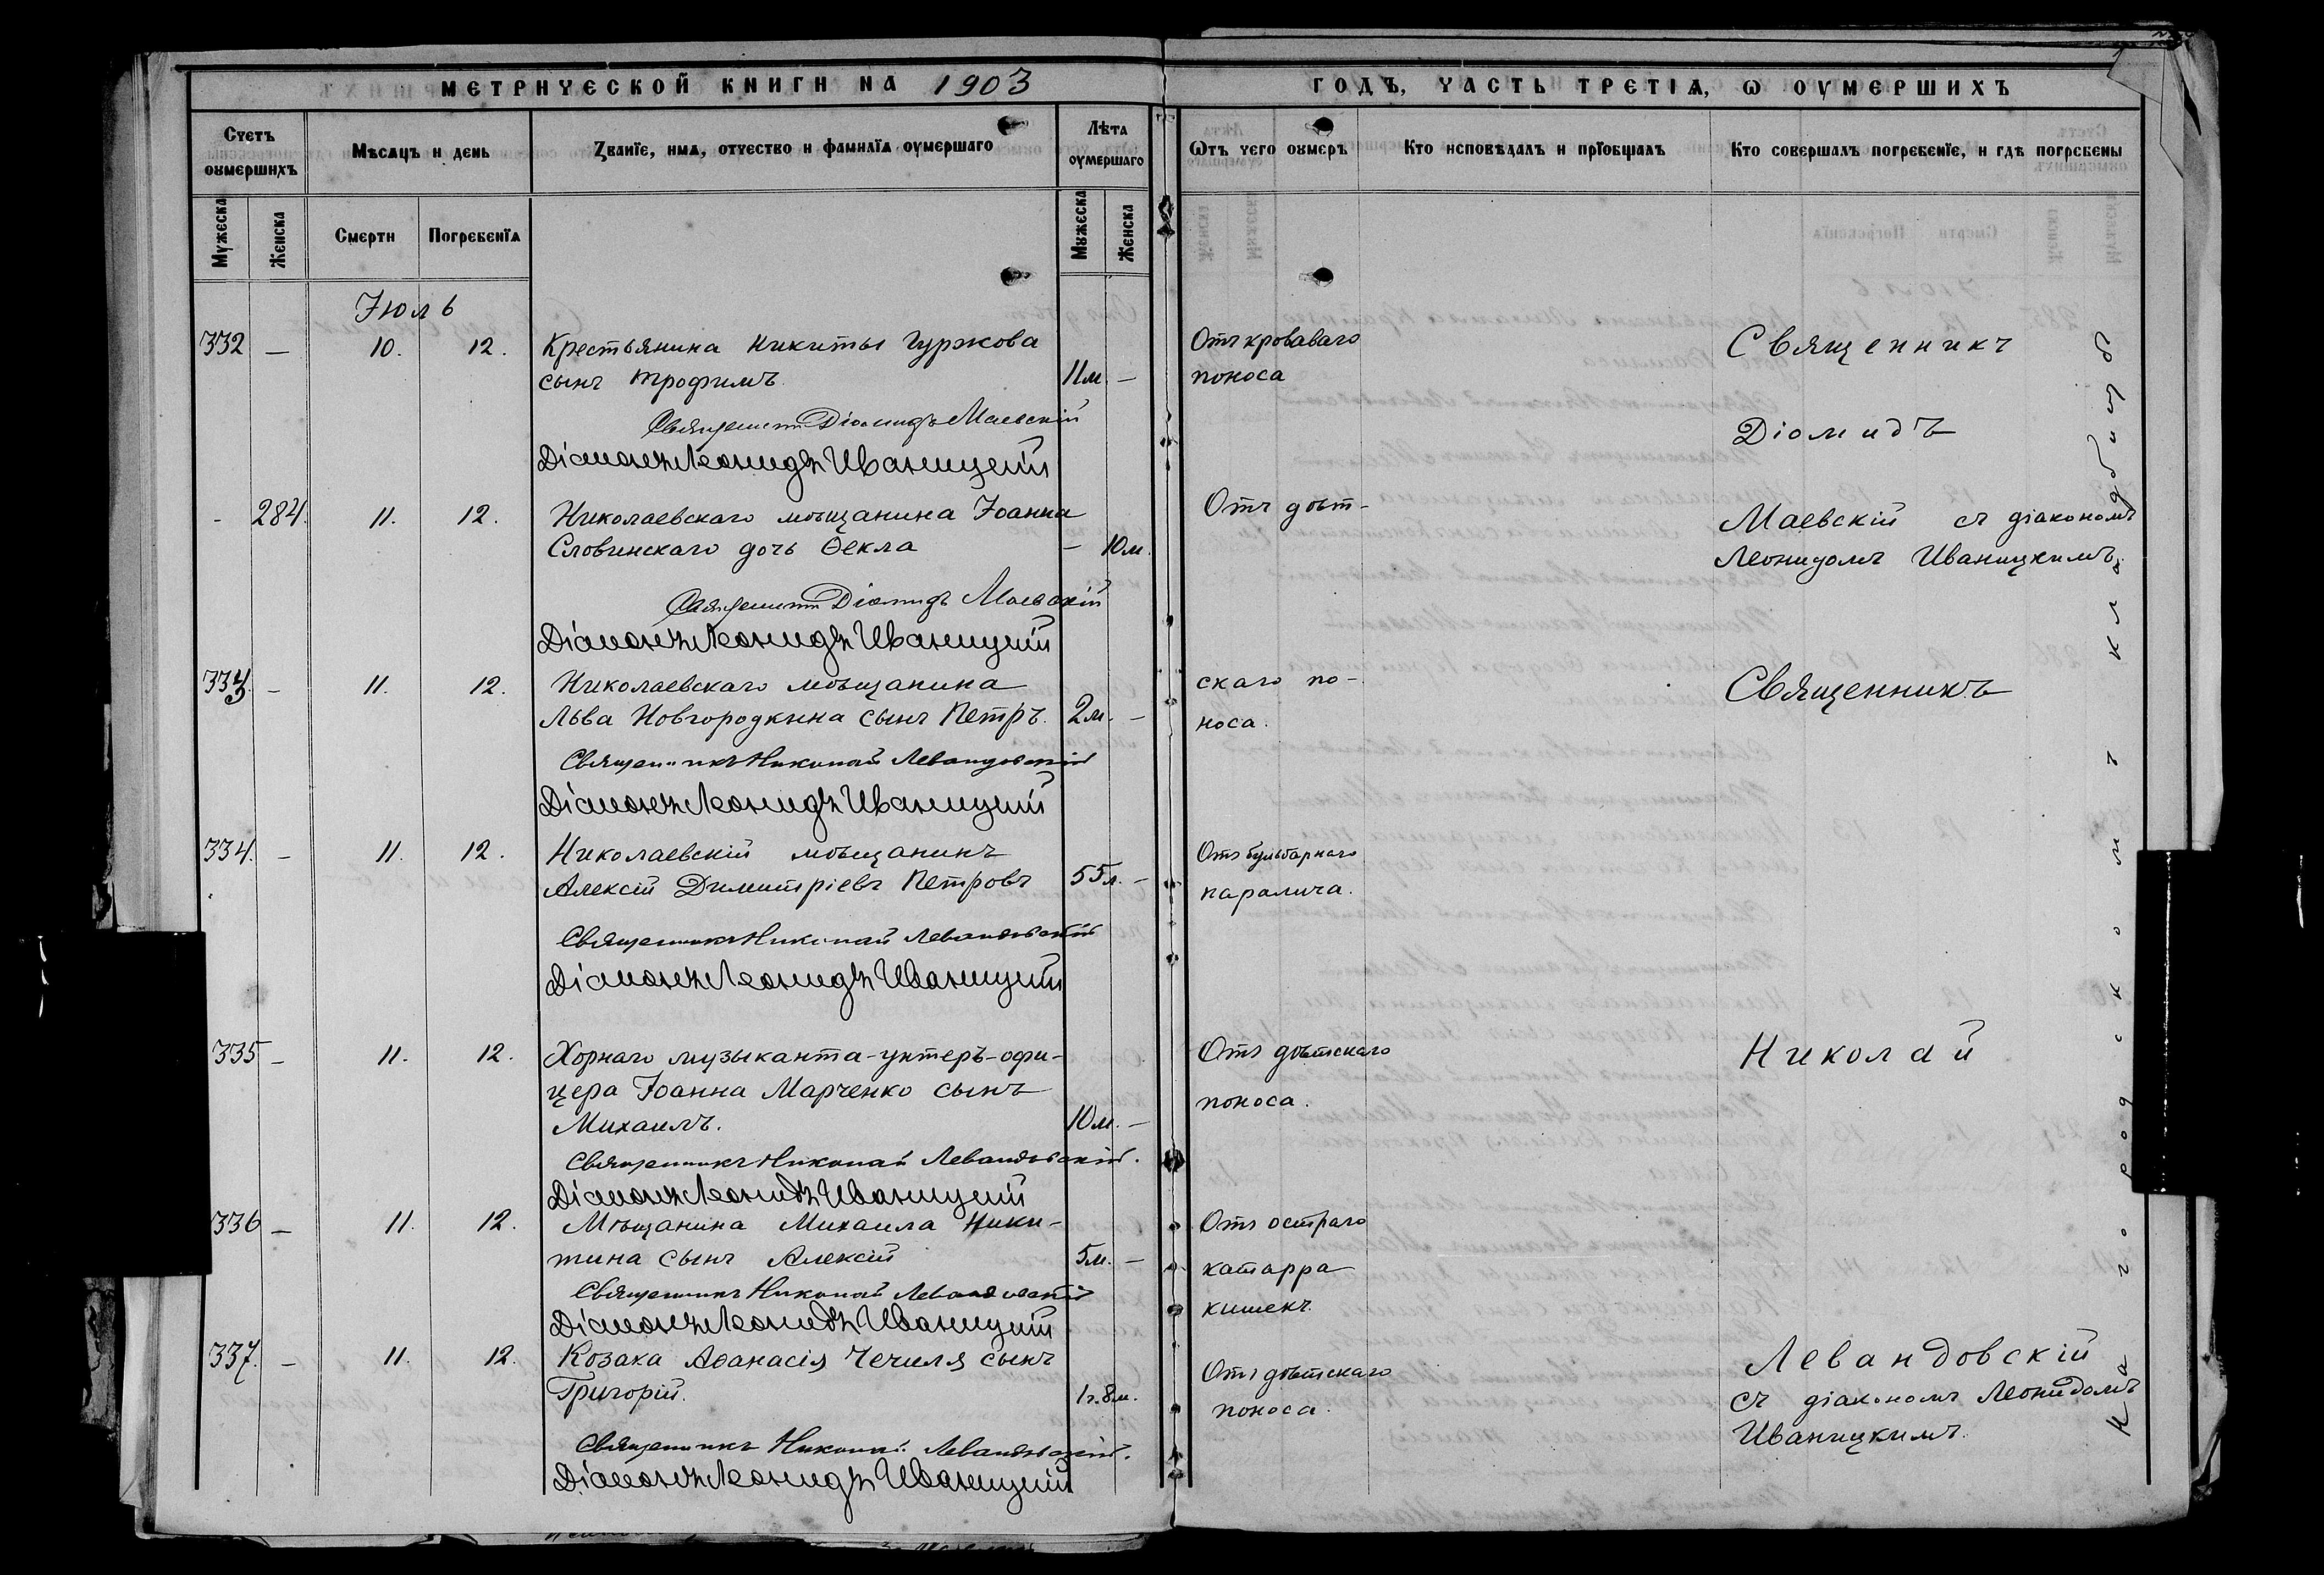 МЕТРИЧЕСКОЙ КНИГИ НА 1903
ГОДЪ, ЧАСТЬ ТРЕТІѦ, Ѡ ОУМЕРШИХЪ
Счетъ оумершихъ
Мѣсѧцъ и день
Званїе, имѧ, отчество и фамилїѧ оумершаго
Лѣта оумершаго
Ѿтъ чего оумеръ
Кто исповѣдалъ и прїобщалъ
Кто совершалъ погребенїе, и гдѣ погребены
Мужеска
Женска
Смерти
Погребенїѧ
Мужеска
Женска
Іюль
332 — 10. 12. Крестьянина Никиты Гуржова
сынъ Трофимъ. 11 м. —
Отъ кроваваго
поноса
Священникъ Діомидъ Маевскій
Діаконъ Леонидъ Иваницкій
- 284. 11. 12. Николаевскаго мѣщанина Іоанна
Словинскаго дочь Ѳекла — 10 м.
Отъ дѣт-
Священникъ Діомидъ Маевскій
Діаконъ Леонидъ Иваницкій
333. — 11. 12. Николаевскаго мѣщанина
Льва Новгородкина сынъ Петръ. 2 м. —
скаго по-
носа.
Священникъ Николай Левандовскій
Діаконъ Леонидъ Иваницкій
334. — 11. 12. Николаевскій мѣщанинъ
Алексій Димитріевъ Петровъ 55 л. —
Отъ бульбарнаго
паралича.
Священникъ Николай Левандовскій
Діаконъ Леонидъ Иваницкій
335 — 11. 12. Хорнаго музыканта-унтеръ-офи-
цера Іоанна Марченко сынъ
Михаилъ. 10 м. —
Отъ дѣтскаго
поноса.
Священникъ Николай Левандовскій.
Діаконъ Леонидъ Иваницкій
336 — 11. 12. Мѣщанина Михаила Ники-
тина сынъ Алексій 5 м. —
Отъ остраго
катарра
кишекъ.
Священникъ Николай Левандовскій
Діаконъ Леонидъ Иваницкій
337. — 11. 12. Козака Аѳанасія Чечиля сынъ
Григорій. 1 г. 8 м.
Отъ дѣтскаго
поноса.
Священникъ Николай Левандовскій.
Діаконъ Леонидъ Иваницкій
Священникъ
Діомидъ
Маевскій съ діакономъ
Леонидомъ Иваницкимъ.
Священникъ
Николай
Левандовскій
съ діакономъ Леонидомъ
Иваницкимъ.
На городскомъ кладбищѣ